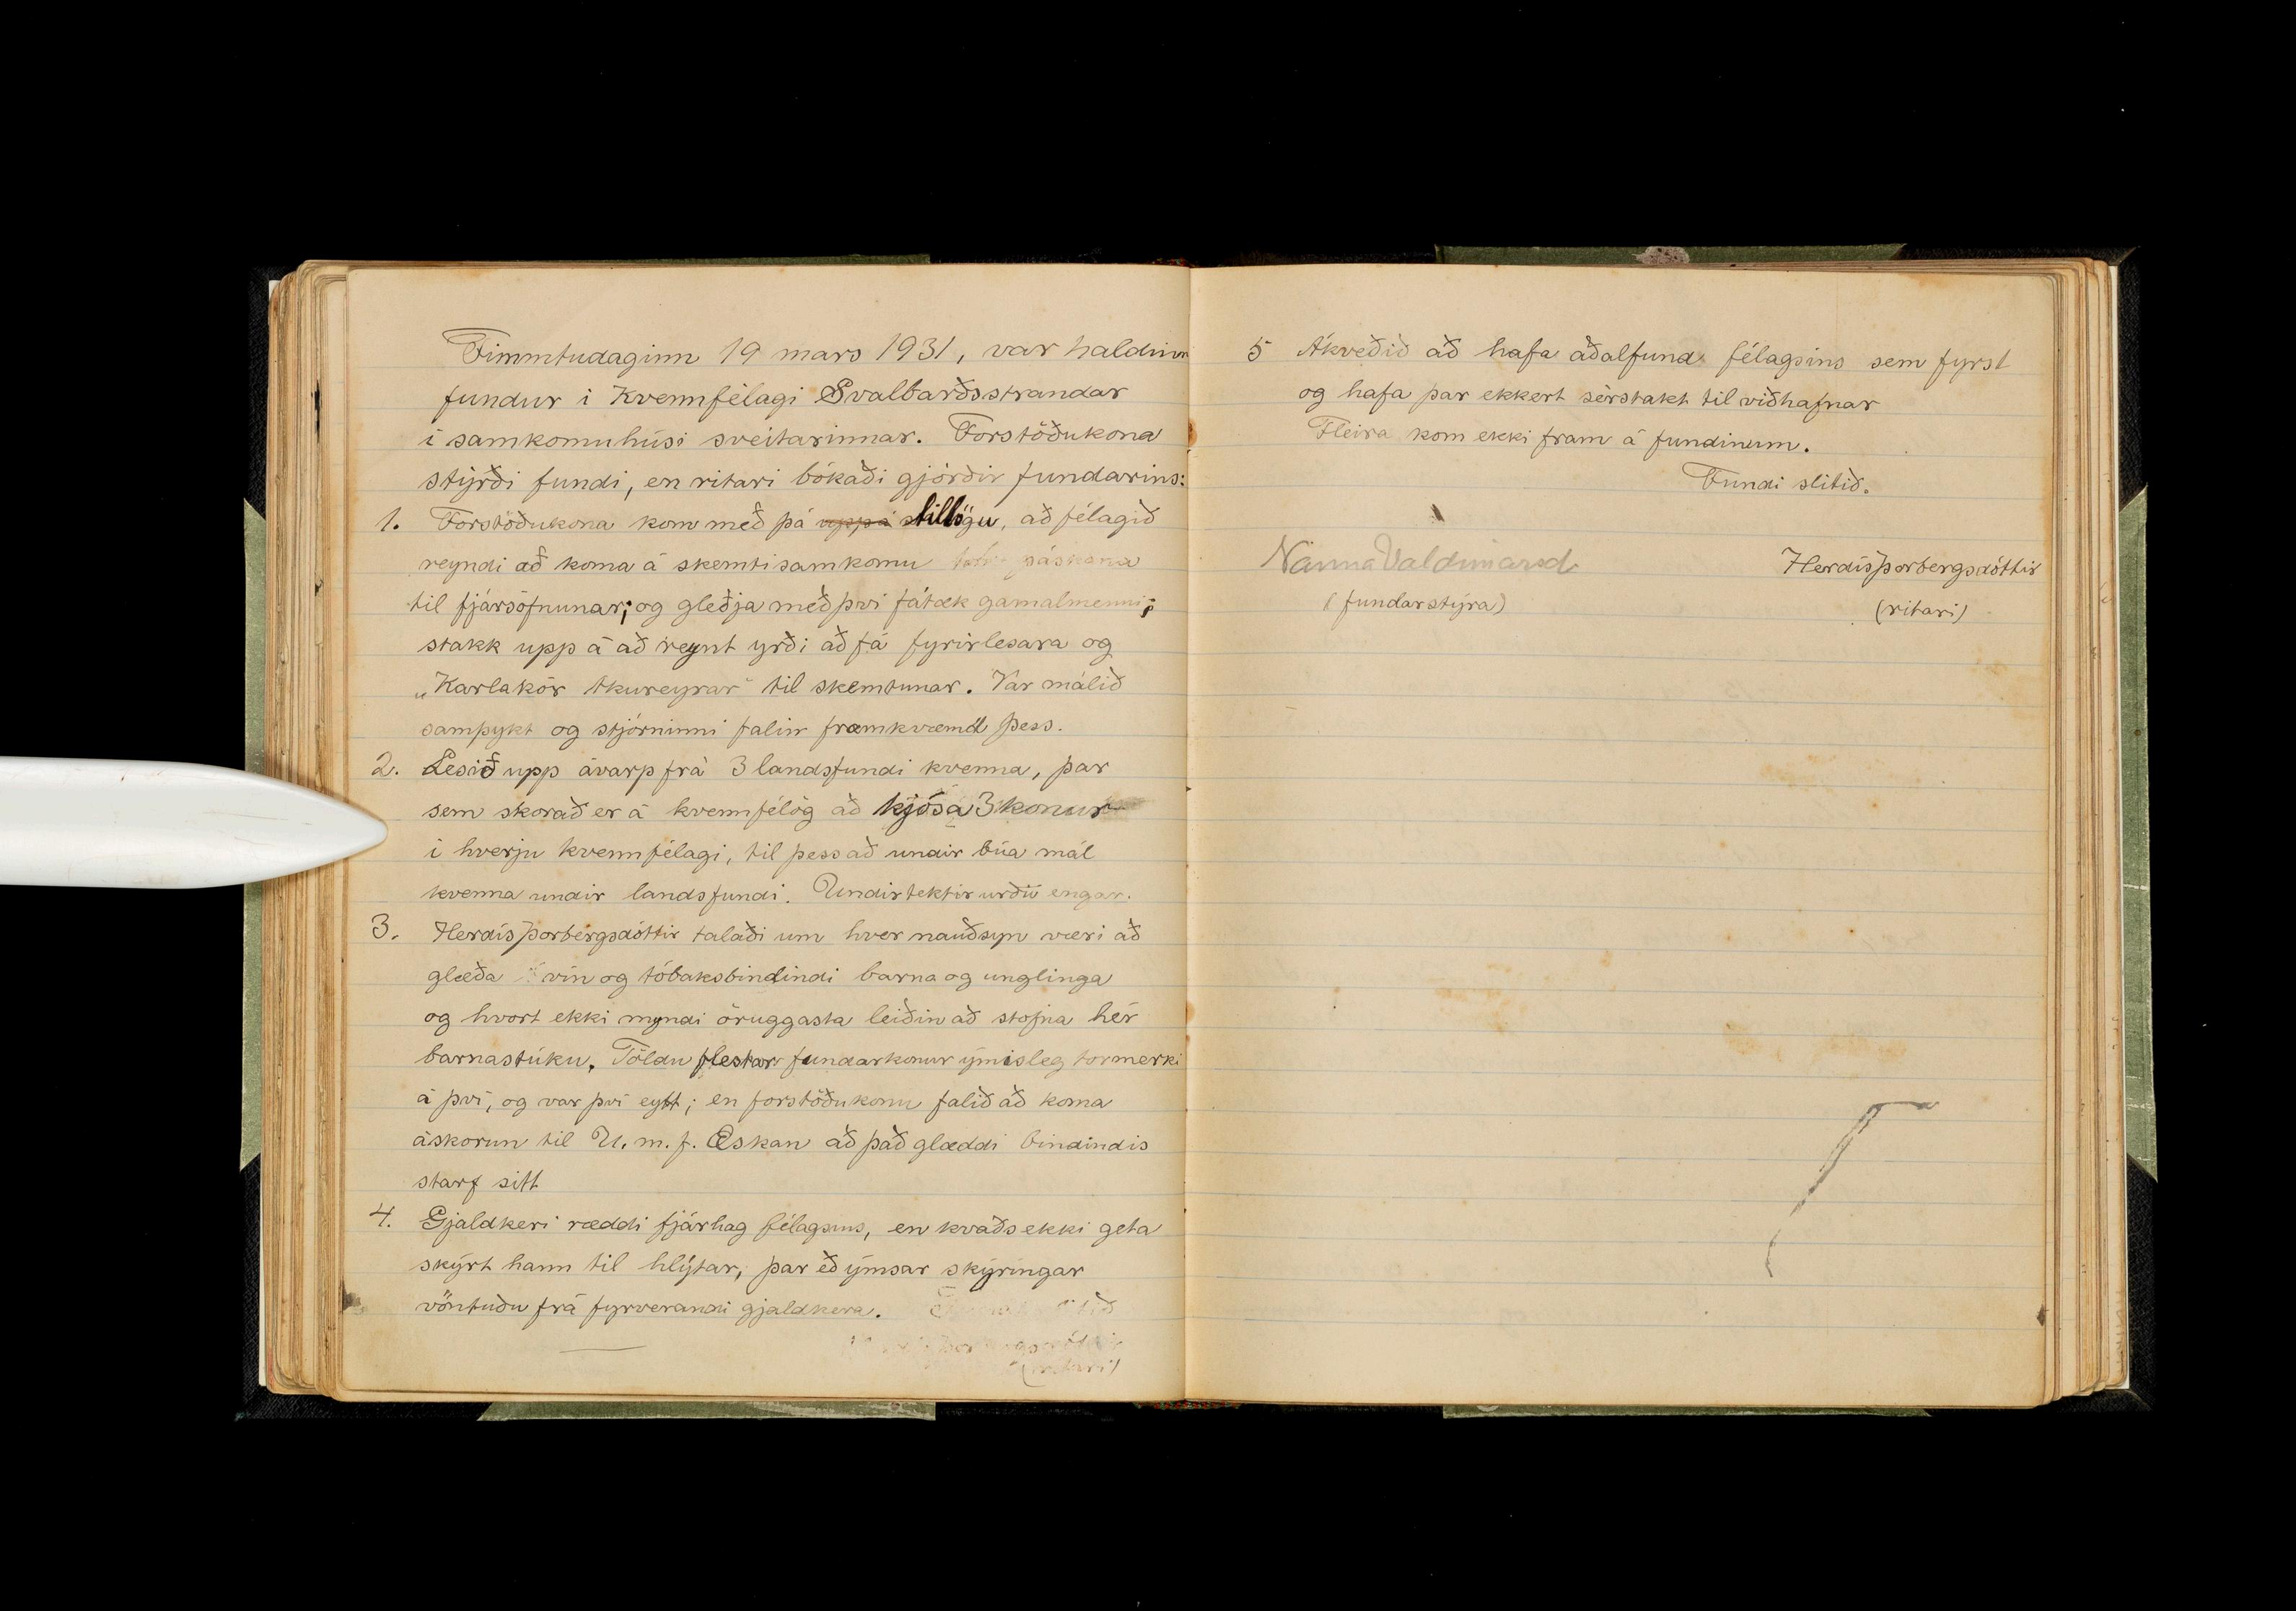 Fimmtudaginn 19 mars 1931, var haldinn
fundur í Kvennfélagi Svalbarðsstrandar
í samkomuhúsi sveitarinnar. Forstöðukona
stýrði fundi, en ritari bókaði gjörðir fundarins:
1. Forstöðukona kom með þá uppá stillögu, að félagið
reyndi að koma á skemtisamkomu páskana
til fjársöfnunar; og gleðja með því fátæk gamalmenni;
stakk upp á að reynt yrði að fá fyrirlesara og
„Karlakór Akureyrar" til skemtunar. Var málið
samþykt og stjórninni falin framkvæmd þess.
2. Lesið upp ávarp frá 3 landsfundi kvenna, þar
sem skorað er á kvennfélög að kjósa 3 konur
í hverju kvennfélagi, til þess að undir búa mál
kvenna undir landsfundi. Undirtektir urðu engar.
3. Herdís Þorbergsdóttir talaði um hver nauðsyn væri að
glæða vín og tóbaksbindindi barna og unglinga
og hvort ekki myndi öruggasta leiðin að stofna hér
barnastúku. Töldu flestar fundarkonur ýmisleg tormerki
á því, og var því eytt; en forstöðukonu falið að koma
áskorun til U.m.f. Æskan að það glæddi bindindis
starf sitt
4. Gjaldkeri ræddi fjárhag félagsins, en kvaðs ekki geta
skýrt hann til hlýtar, þar eð ýmsar skýringar
vöntuðu frá fyrverandi gjaldkera. slitið
(ritari)
5 Ákveðið að hafa aðalfund félagsins sem fyrst
og hafa þar ekkert sérstakt til viðhafnar
Fleira kom ekki fram á fundinum.
Fundi slitið.
Nanna Valdimarsd Herdís Þorbergsdóttir
(fundarstýra) (ritari)